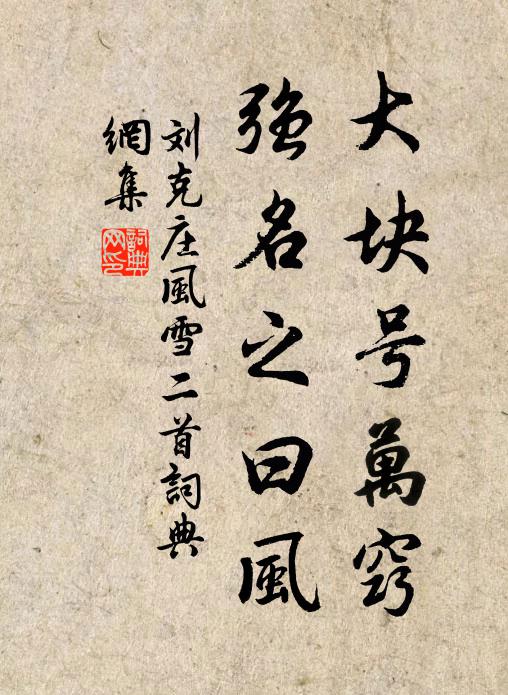 大块号萬窍
強名之曰風
刘克庄風雪二首詞典
網集
詞典網印